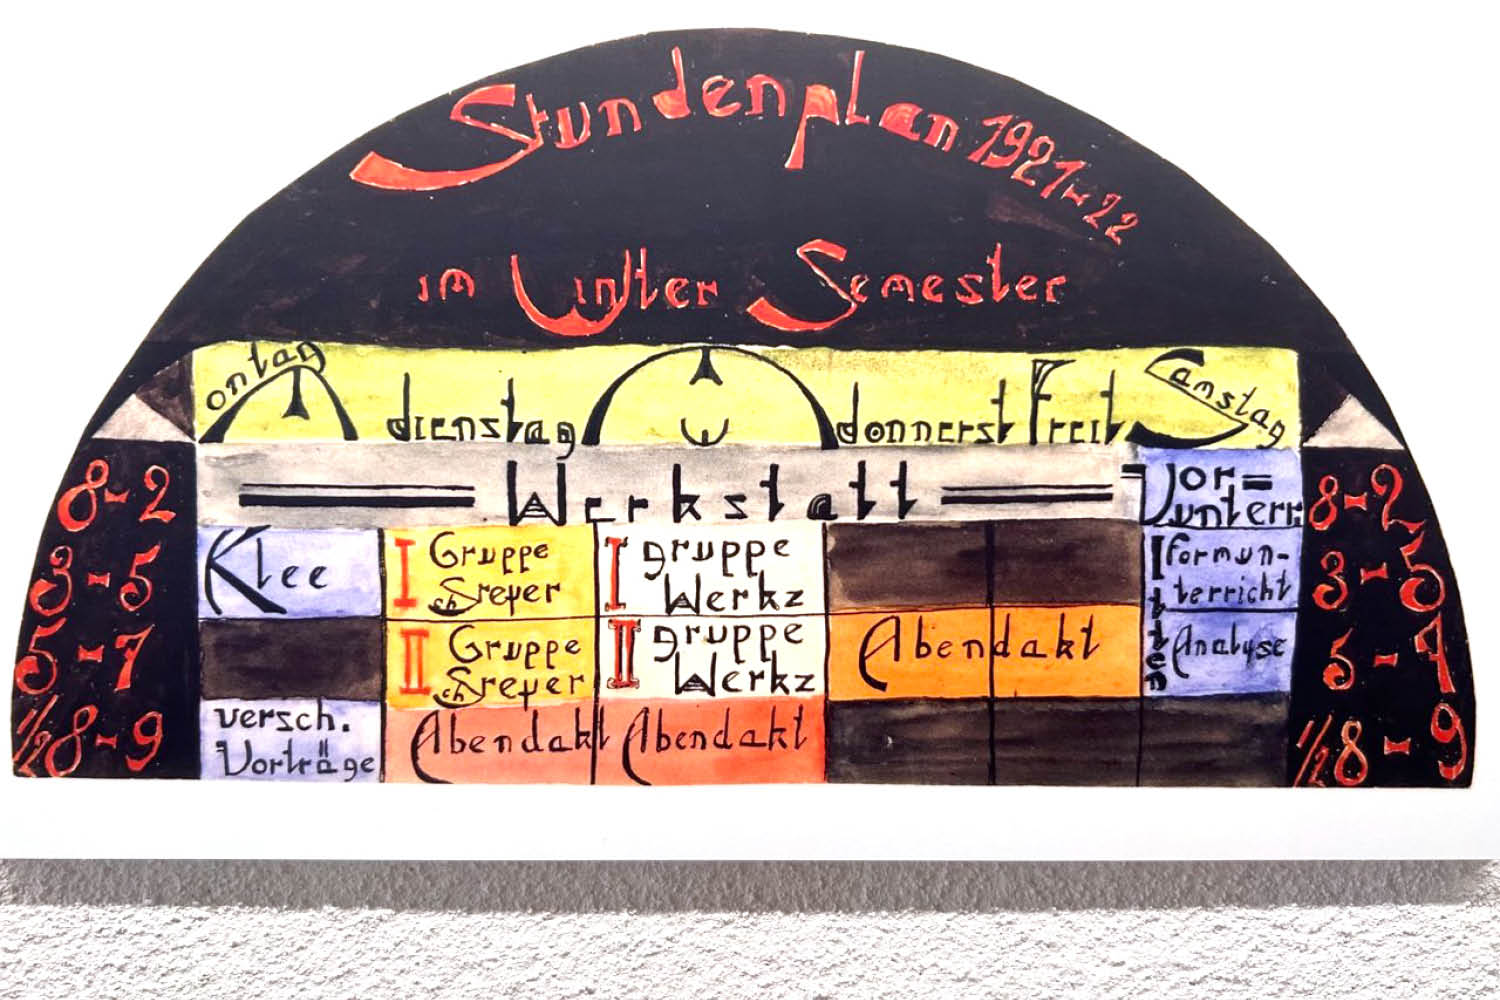 Stundenplan 1921-22
im Winter Semester
Montag dienstag MW donnerst Freit Samstag
8-2 Werkstatt Vor=unterr. 8-2
3-5 Klee I Gruppe Schreyer I gruppe Werkz Itten formunterricht 3-5
5-7 II Gruppe Schreyer II gruppe Werkz Abendakt Analyse 5-7
1/2 8-9 versch. Vorträge Abendakt Abendakt 1/2 8-9